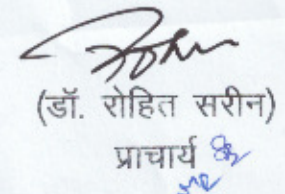 (डॉ. रोहित सरीन)
प्राचार्य